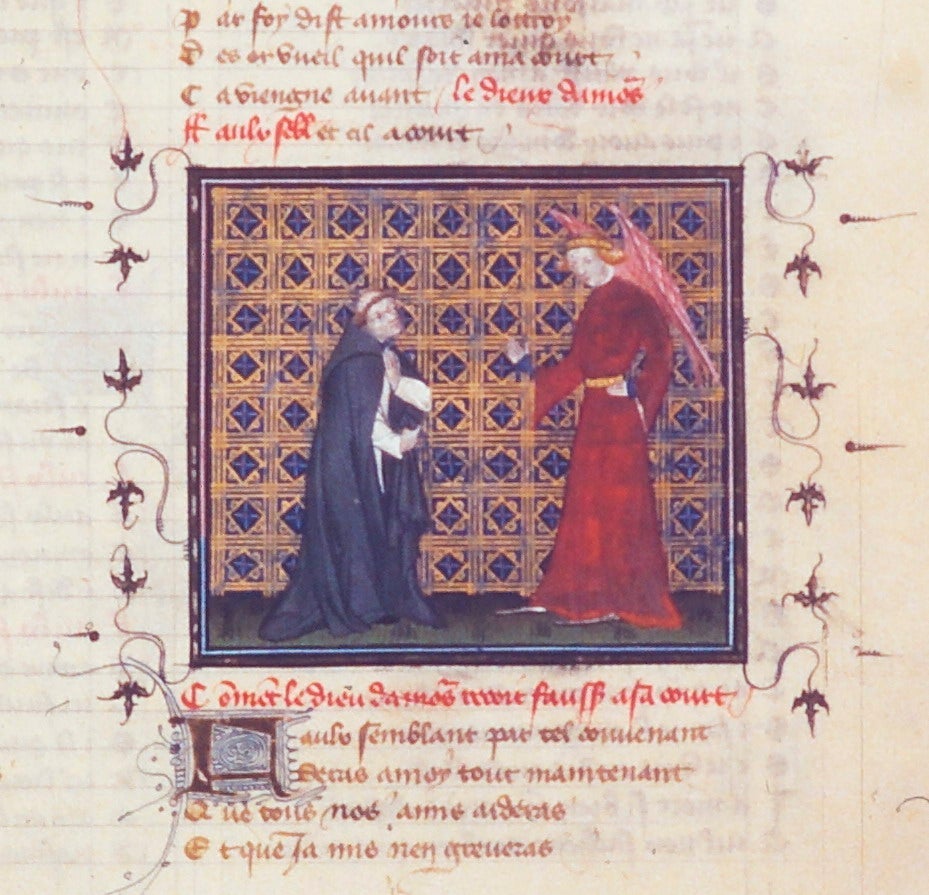 P ar foy dist amours ie lottroy
D es or vueil quil soit a ma court
C a viengne avant le dieu damõs
ff aulx sebl et cil acourt
C õmẽt le dieu damõs retoit faulx a sa court
F aulx semblant par tel couuenant
S eras amoy tout maintenant
Q ue tous nos amis aideras
E t que Ja mis nen greueras